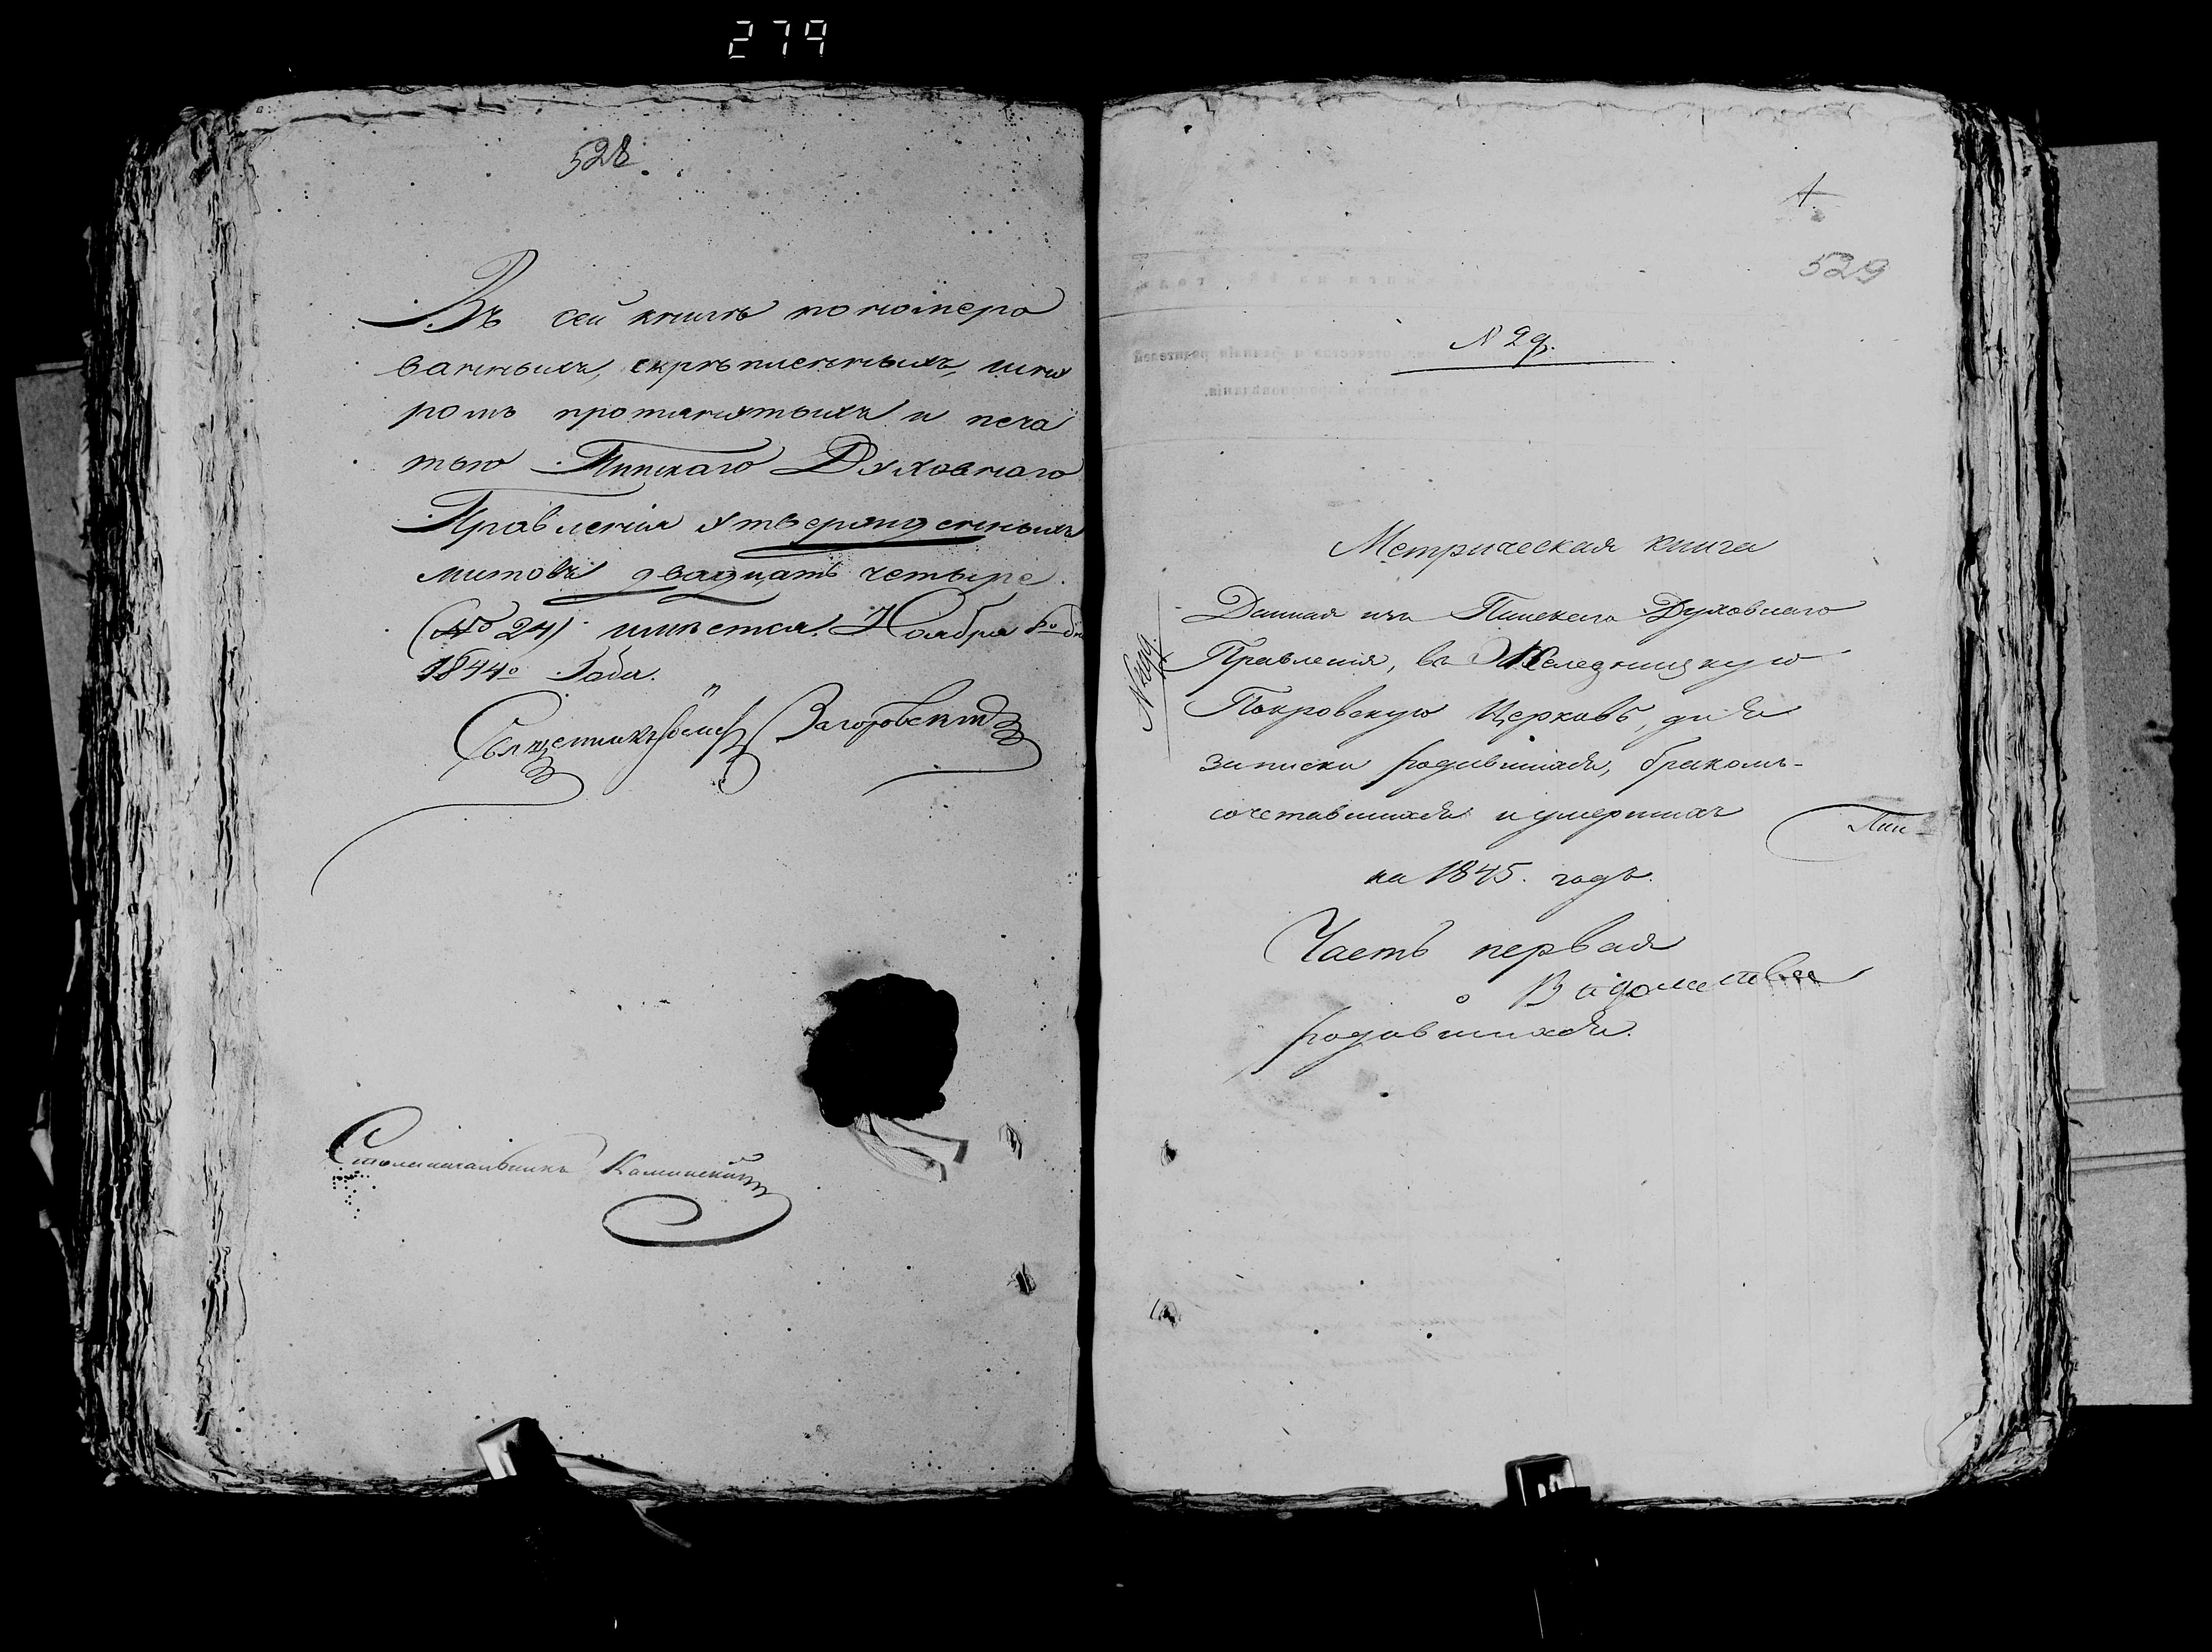 279
528
Въ сей книгѣ пономеро
ванныхъ, скрѣпленныхъ, шну
ромъ протянутыхъ и печа
тью Пинскаго Духовнаго
Правленія утвержденныхъ
листовъ двадцать четыре
(№ 24) имѣется. Ноября
1844го Года.
Священникъ Загоровскій
Столоначальникъ Каминскій
1
529
№ 29.
Метрическая книга
Данная изъ Пинскаго Духовнаго
Правленія, въ
Покровскую Церковь, для
записки родившихся, бракомъ-
сочетавшихся и умершихъ
Пин-
на 1845. годъ.
Часть первая
о
родившихся.